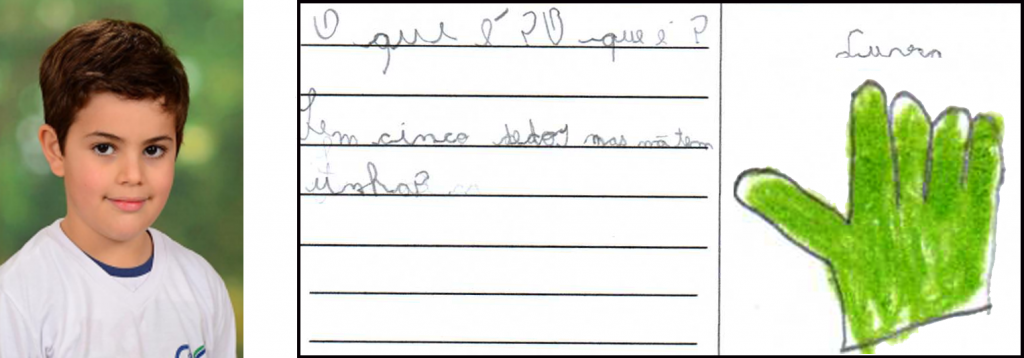 O que é? O que é?
Tem cinco dedos mas não tem
unha?
Luva